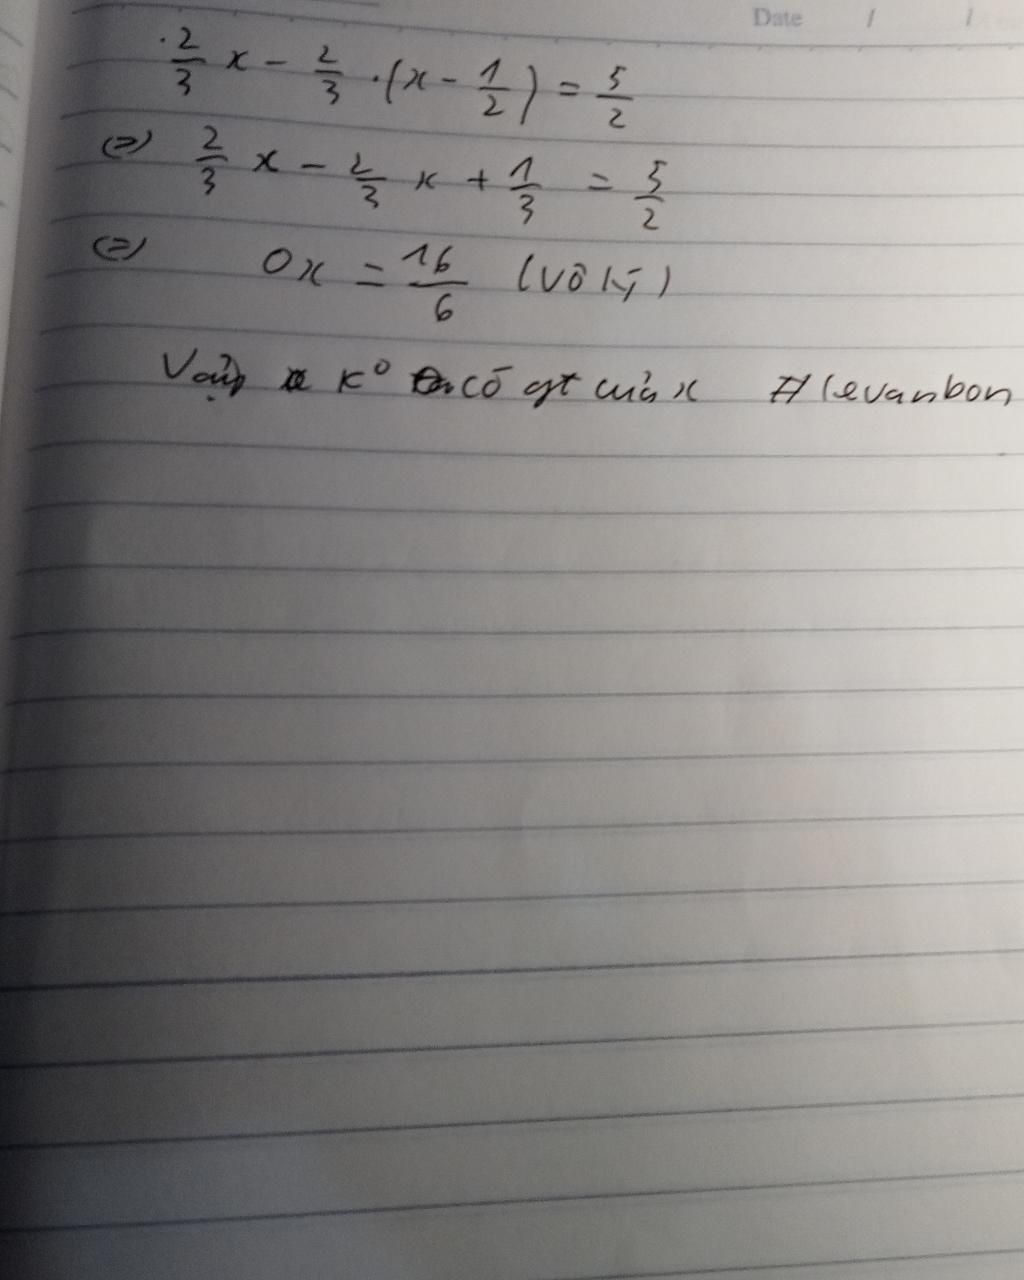 Date / /
2/3 x - 2/3 .(x - 1/2) = 5/2
(=) 2/3 x - 2/3 x + 1/3 = 5/2
(=) 0x = 16/6 (vô lý)
Vậy k° có gt của x #levanbon